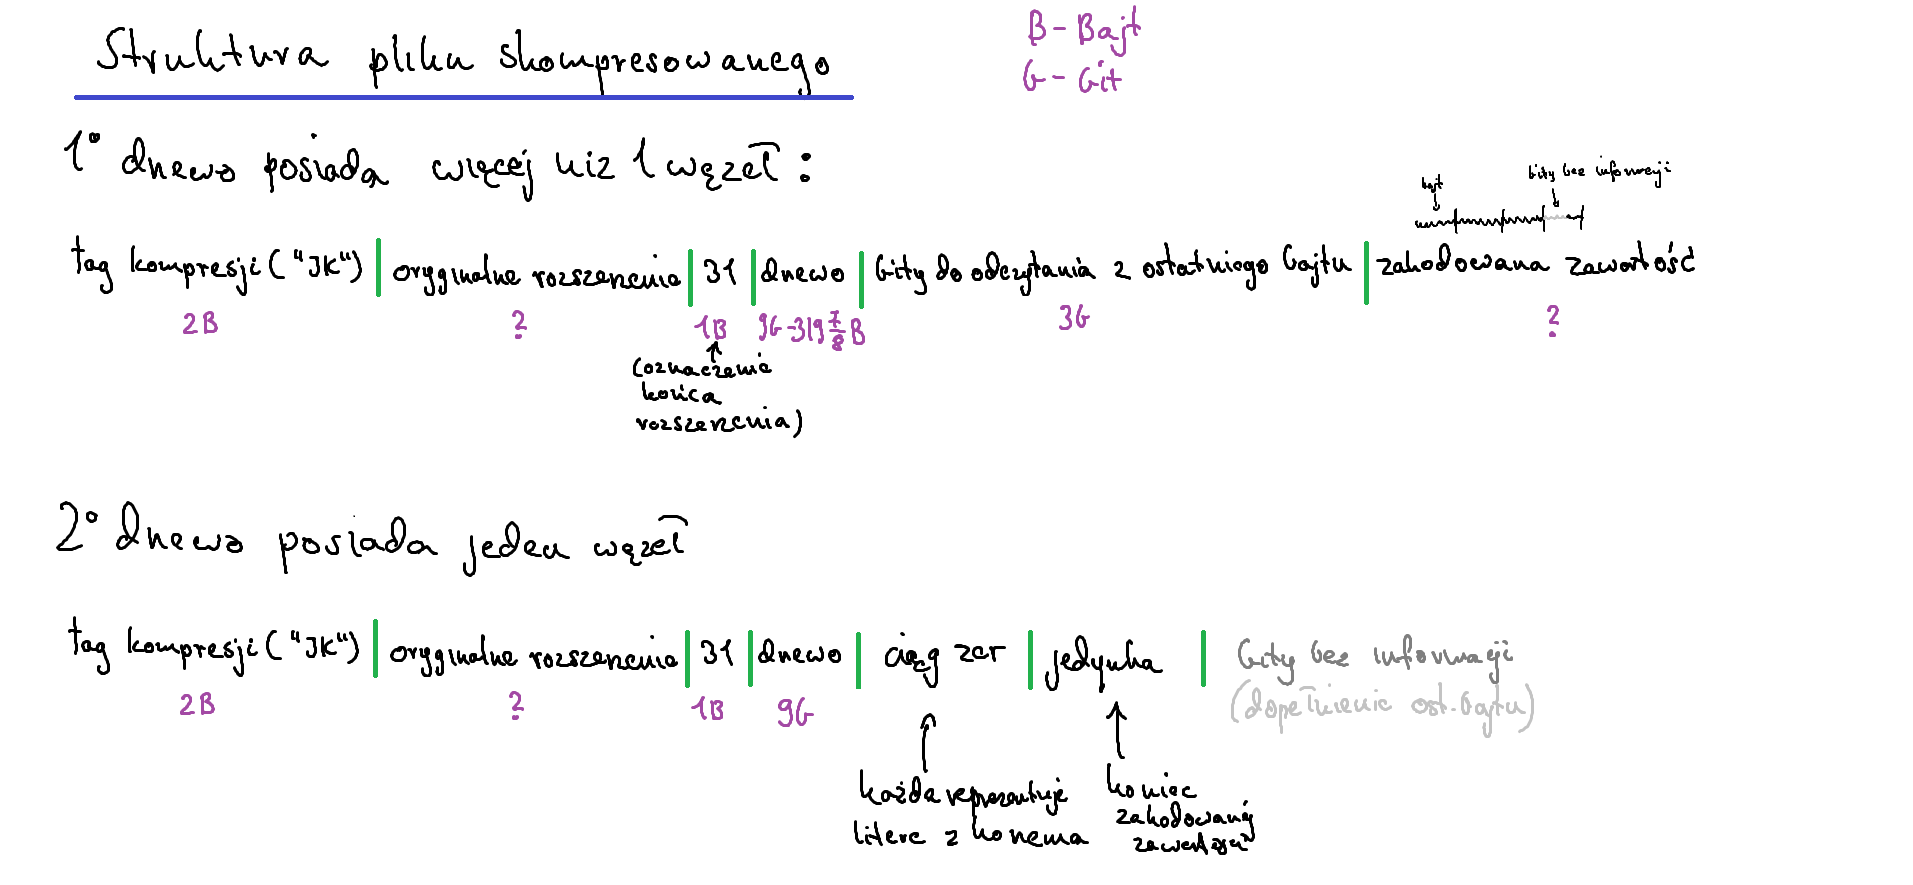 Struktura pliku skompresowanego
B - Bajt
b - bit
1° drzewo posiada więcej niż 1 węzeł:
bajt
bity bez informacji
tag kompresji ("JK") | oryginalne rozszerzenie | 31 | drzewo | bity do odczytania z ostatniego bajtu | zakodowana zawartość
2B ? 1B 9b-319 7/8 B 3b ?
(oznaczenie
końca
rozszerzenia)
2° drzewo posiada jeden węzeł
tag kompresji ("JK") | oryginalne rozszerzenie | 31 | drzewo | ciąg zer | jedynka | bity bez informacji
2B ? 1B 9b (dopełnienie ost. bajtu)
każda reprezentuje
literę z korzenia
koniec
zakodowanej
zawartości